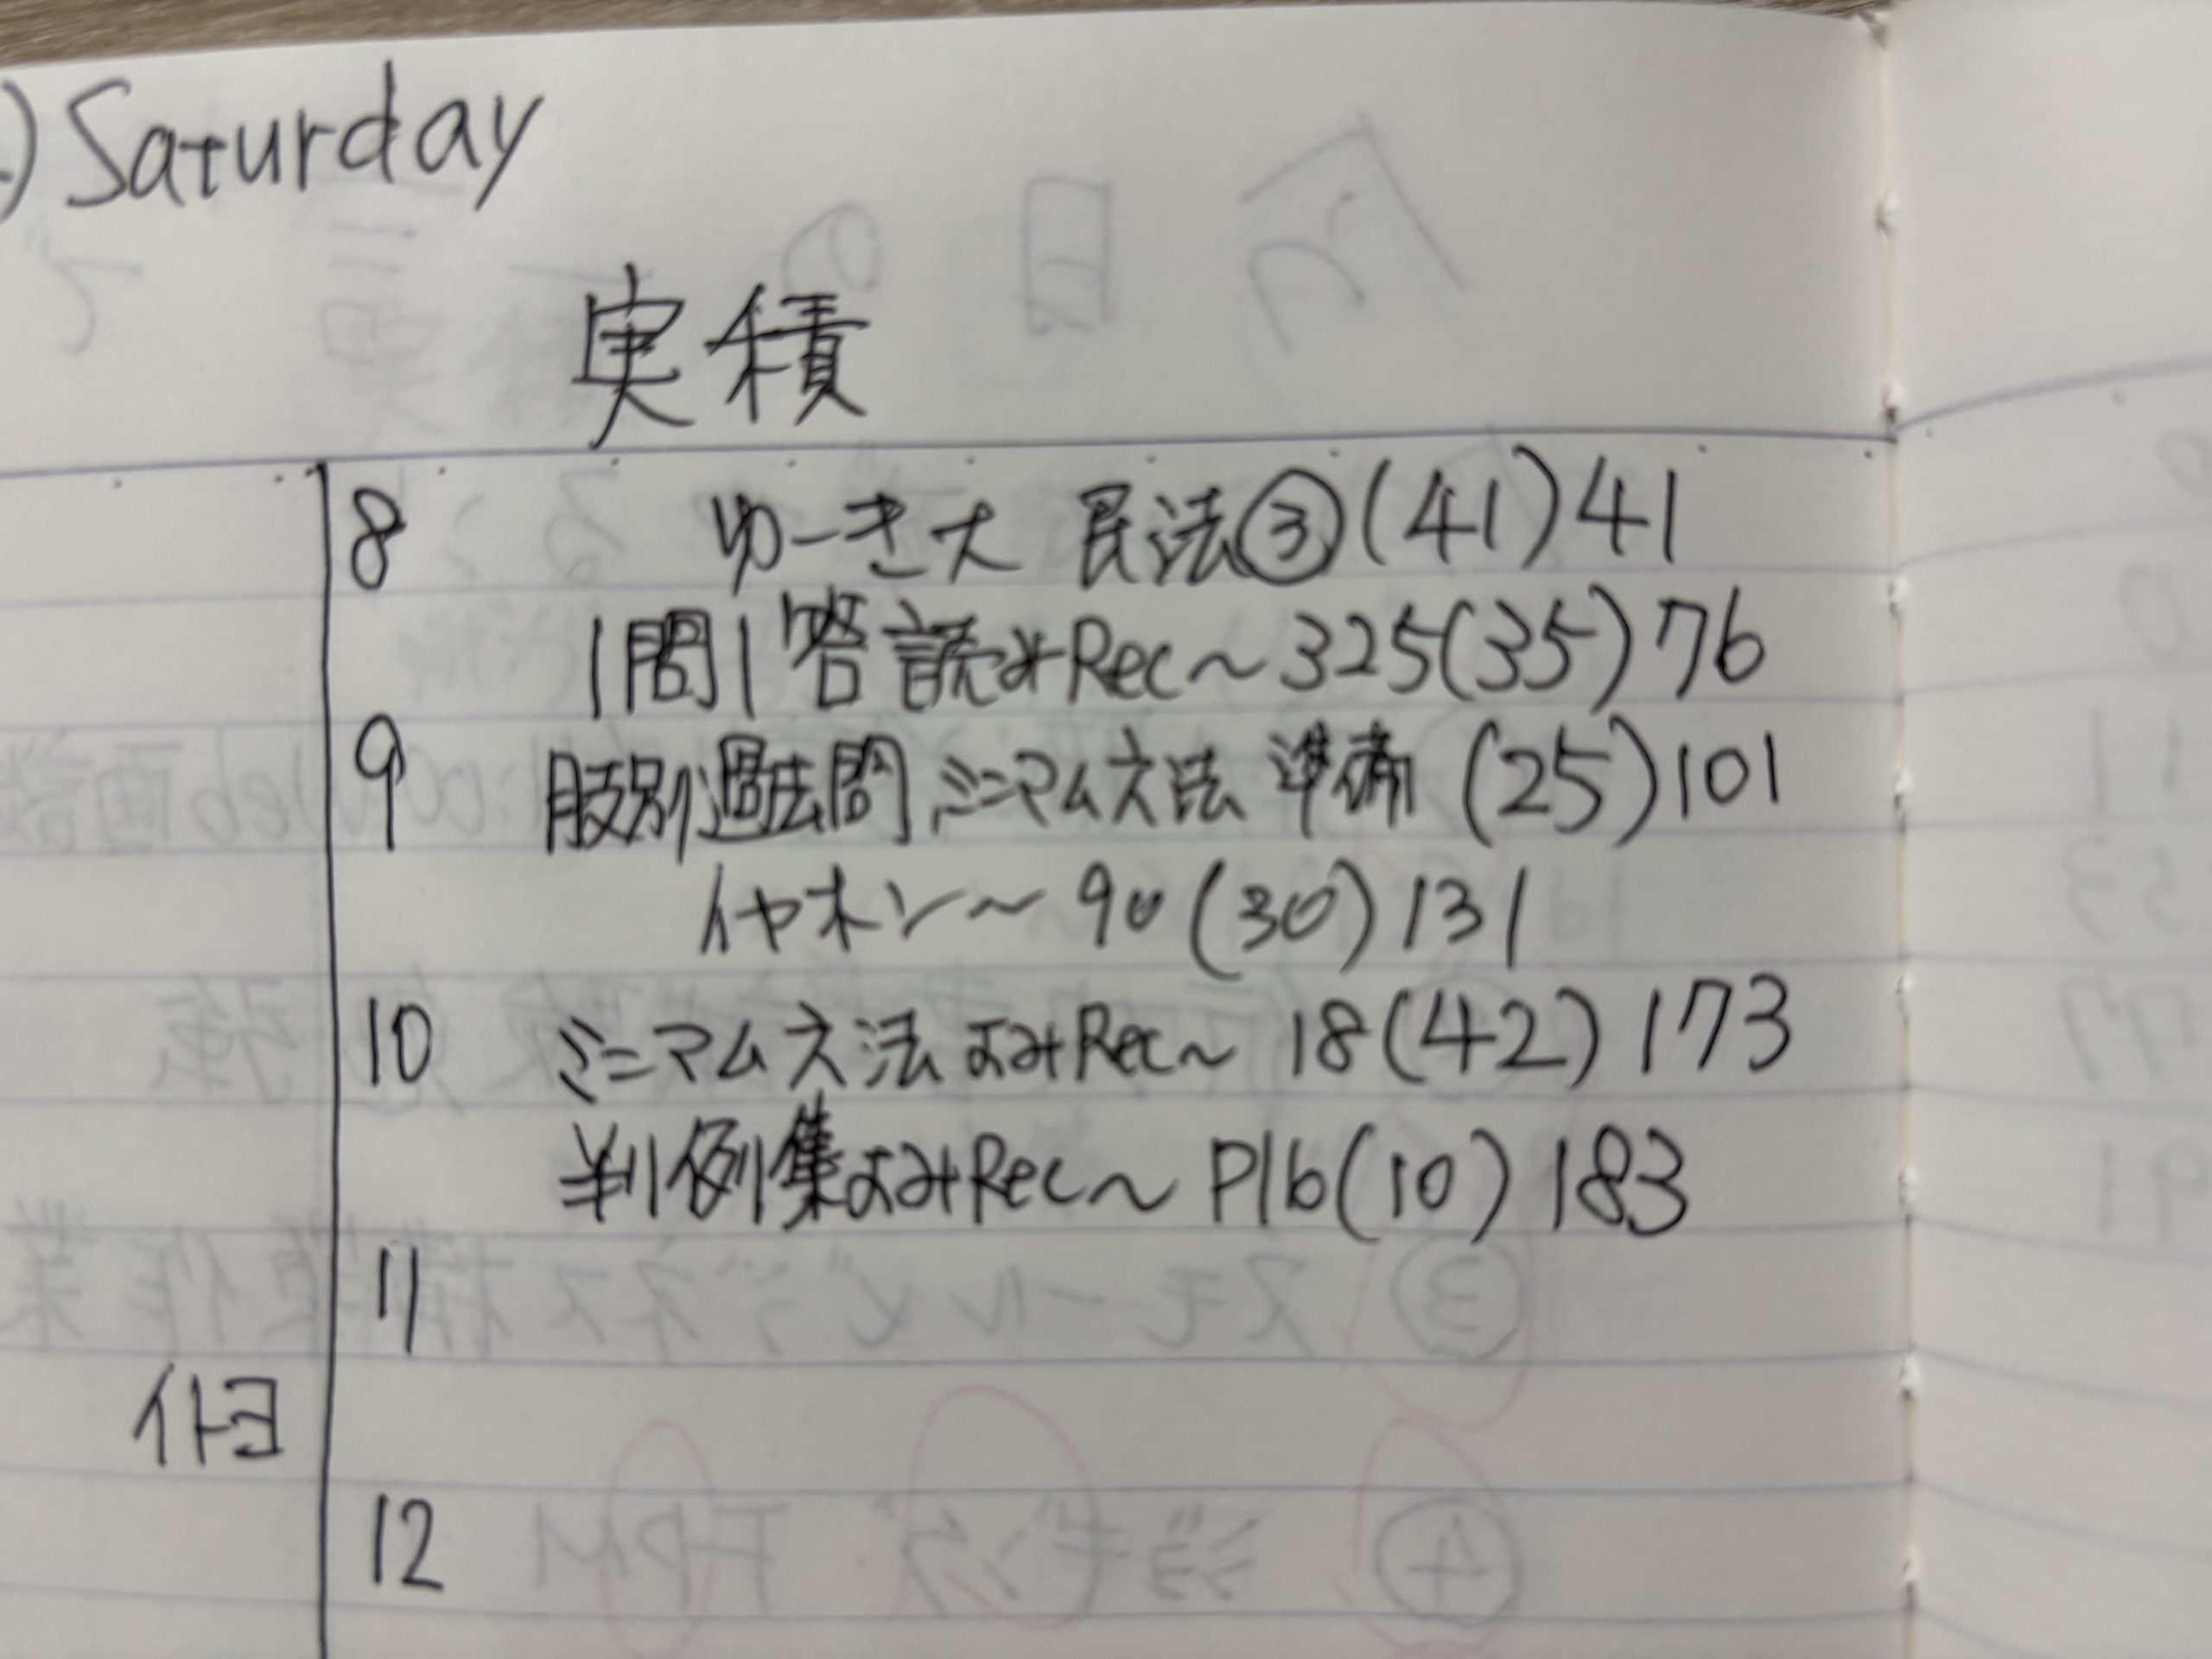 ) Saturday
実積
8 ゆーき大 民法③(41)41
1問1答 読みRec〜325(35)76
9 肢別過去問 ミニマム六法 準備 (25)101
イヤホン〜90(30)131
10 ミニマム六法 よみRec〜 18(42)173
判例集よみRec〜P16(10)183
11
12